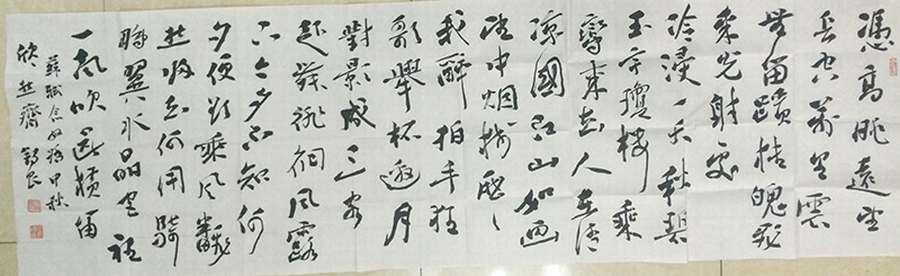 憑高眺遠望
長空萬里雲
無留蹟桂魄飛
來光射處
冷浸一天秋碧
玉宇瓊樓乘
鸞來去人在清
涼國江山如畫
望中烟樹歷々
我醉拍手狂
歌舉杯邀月
對影成三客
起舞徘徊風露
下今夕不知何
夕便欲乘風翻
然歸去何用騎
鵬翼水晶宮裡
一聲吹斷橫笛
蘇軾念奴嬌中秋
欣然齋